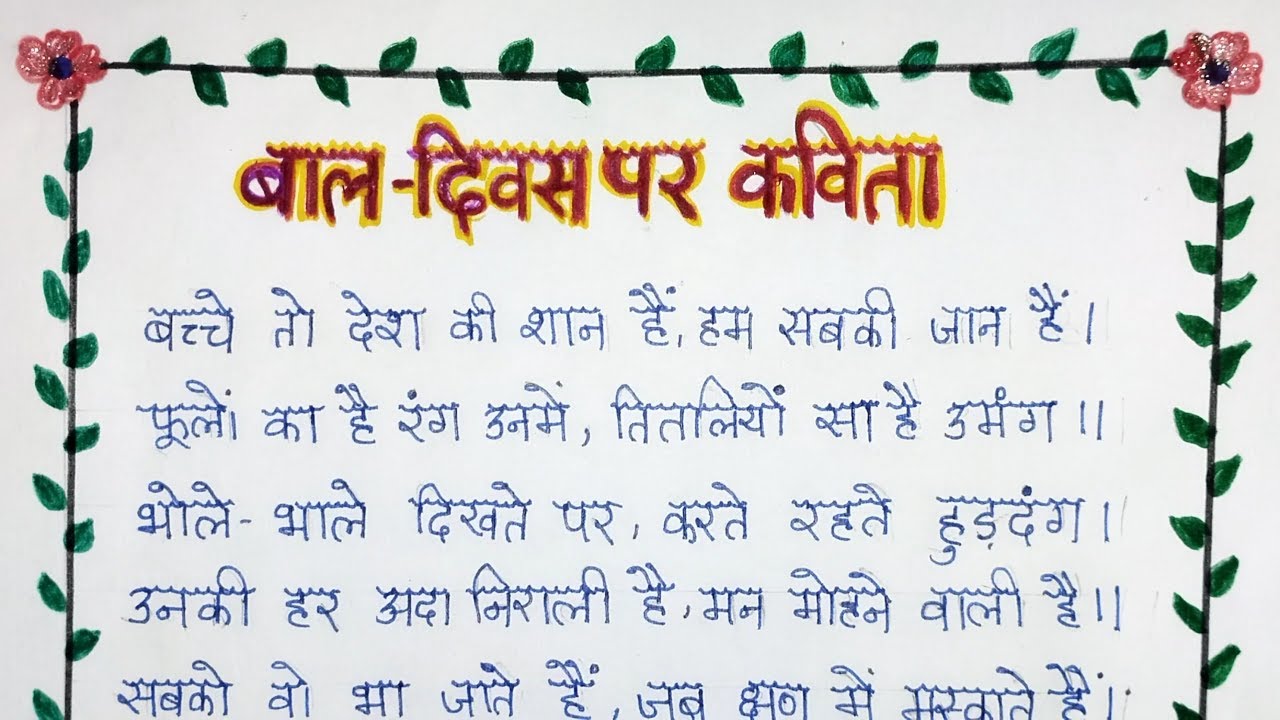 बाल-दिवस पर कविता
बच्चे तो देश की शान हैं, हम सबकी जान हैं।
फूलों का है रंग उनमें, तितलियों सा है उमंग॥
भोले-भाले दिखते पर, करते रहते हुड़दंग।
उनकी हर अदा निराली है, मन मोहने वाली है॥
सबको वो भा जाते हैं, जब क्षण में मुस्काते हैं।